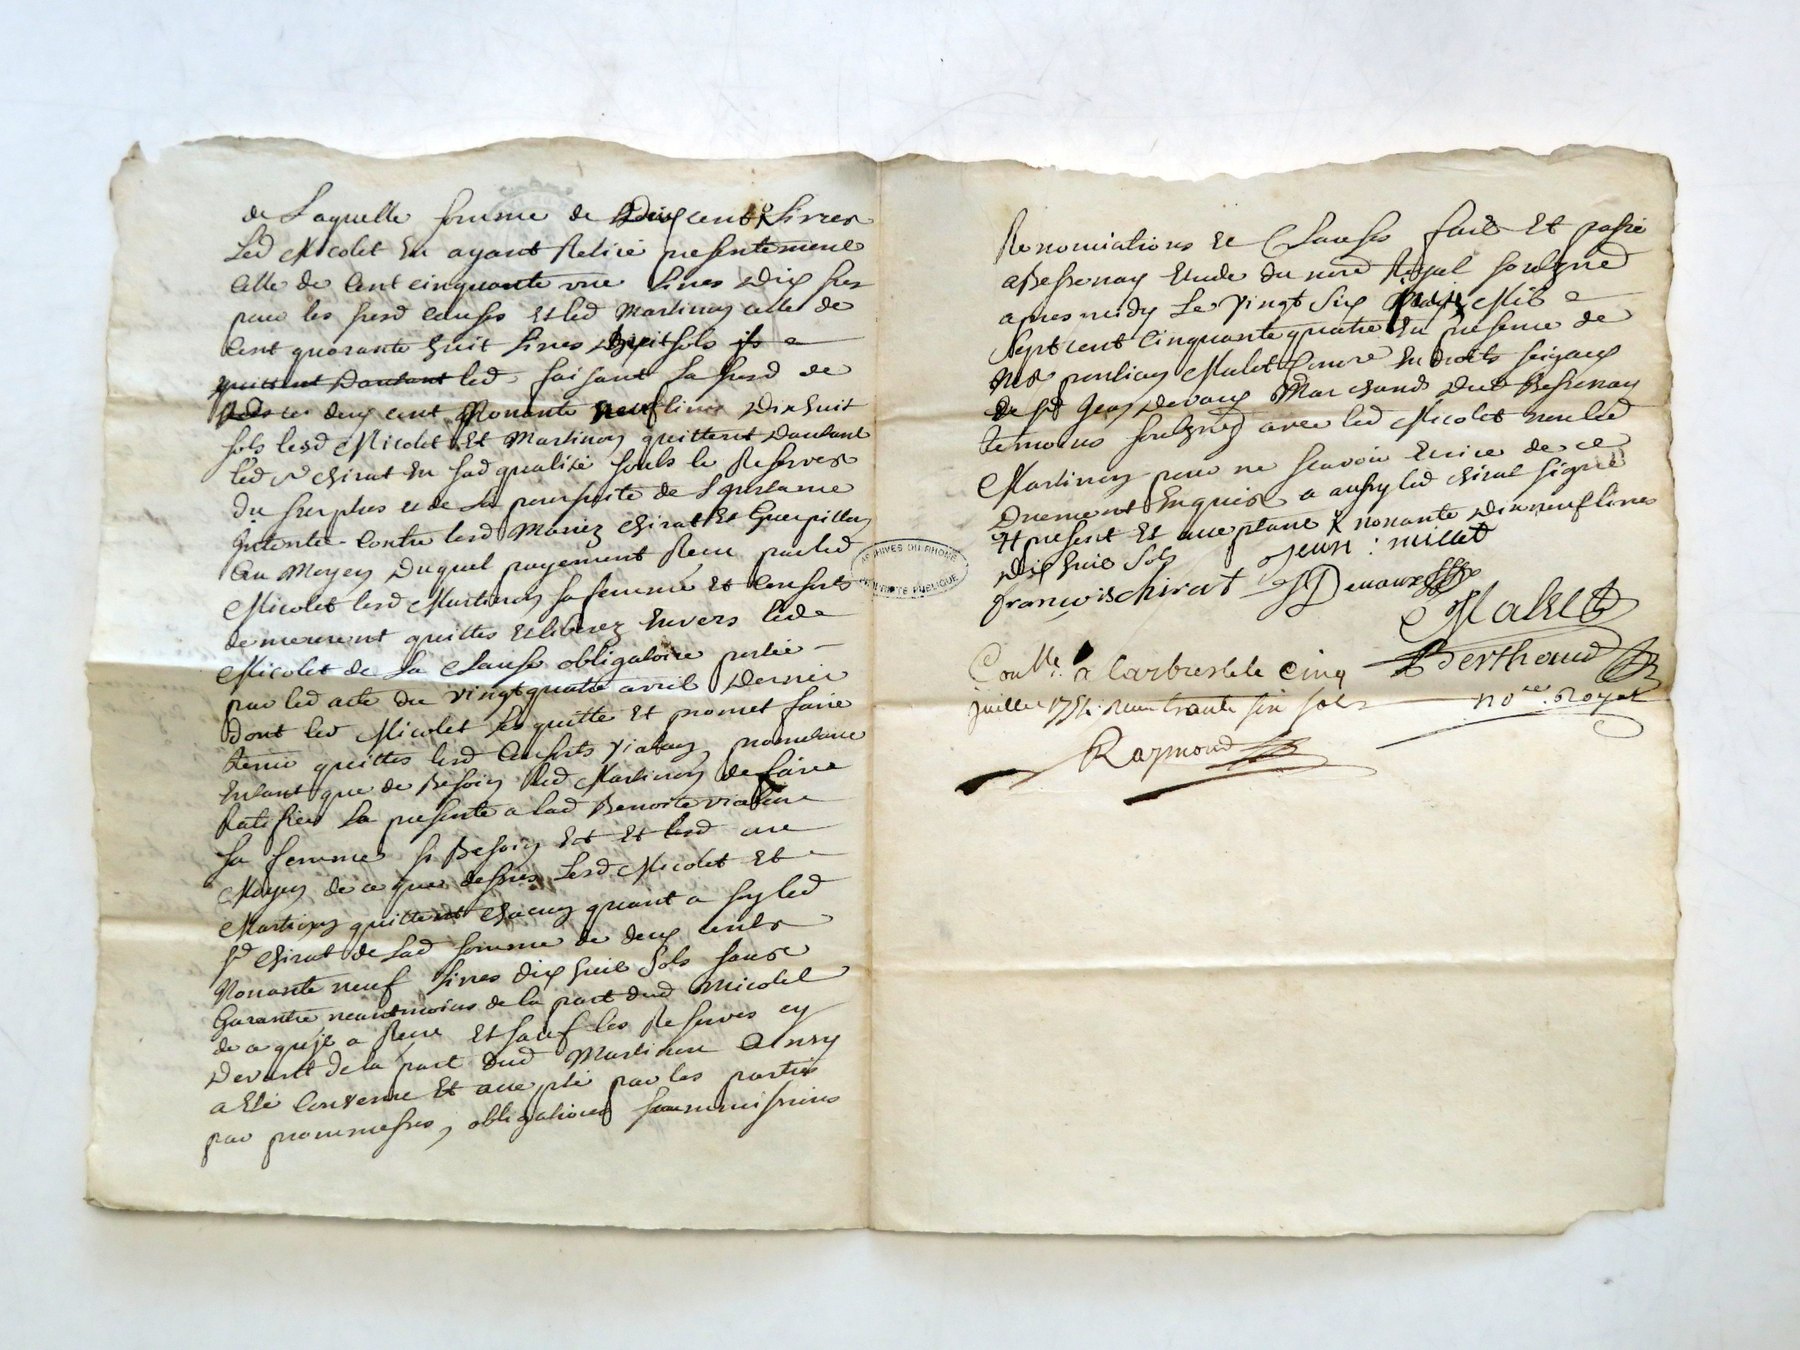 de Laquelle somme de Deux cent Livres
Led Nicolet en ayant Retiré presentement
celle de Cent cinquante une Livres Dix sus
pour les susd causes et led Martinon celle de
Cent quarante huit Livres huit sols
quittent Dautant led faisant La susd de
deux cent Nonante neuf livres Dix huit
sols lesd Nicolet Et Martinon quittent Dautant
led Sr Chirat en sad qualité sous la Reserve
Du surplus et de la poursuite de L'instance
Intentée Contre lesd Mariez Chirat Et Guerpillon
Au Moyen Duquel payement Receu par led
Nicolet lesd Martinon sa femme et Consorts
demeurent quittes et liberez Envers led
Nicolet de La Clause obligatoire portée
par led acte du vingt quatre avril Dernier
Dont led Nicolet les quitte Et promet faire
tenir quittes lesd Consorts Vialon promettant
Entant que de Besoin led Martinon de faire
Ratifier La presente a lad Benoite Vialon
sa femme si Besoin Est Et lesd au
Moyen de ce que dessus Lesd Nicolet Et
Martinon quittent chacun quant a soy led
sr Chirat de Lad somme de deux cents
Nonante neuf Livres dix huit Sols sans
Garantie neantmoins de la part dud Nicolet
de ce qu'il a Receu Et sauf les Reserves cy
Devant de la part dud Martinon Ainsy
a Eté Convenu Et accepté par les parties
par promesses, obligations soummissions
Renonciations et Clauses fait Et passé
a Bessenay Etude du nore Royal soussigné
apres midy Le Vingt Six Juin Mil
Sept cent Cinquante quatre En presence de
Me pontian Malet en Droits
Jean Devaux Marchand Dud Bessenay
temoins soussignez avec led Nicolet non led
Martinon pour ne scavoir Ecrire de ce
Duement Enquis a aussy led Chirat signé
present Et acceptant nonante Dix neuf livres
Dix huit Sols Jean : nicolet
françois chirat Devaux
Malet
Conlle a Larbresle le Cinq Berthaud
Juillet 1754 Receu trante six sols nore Royal
Raymond
ARCHIVES DU RHONE
PUBLIQUE